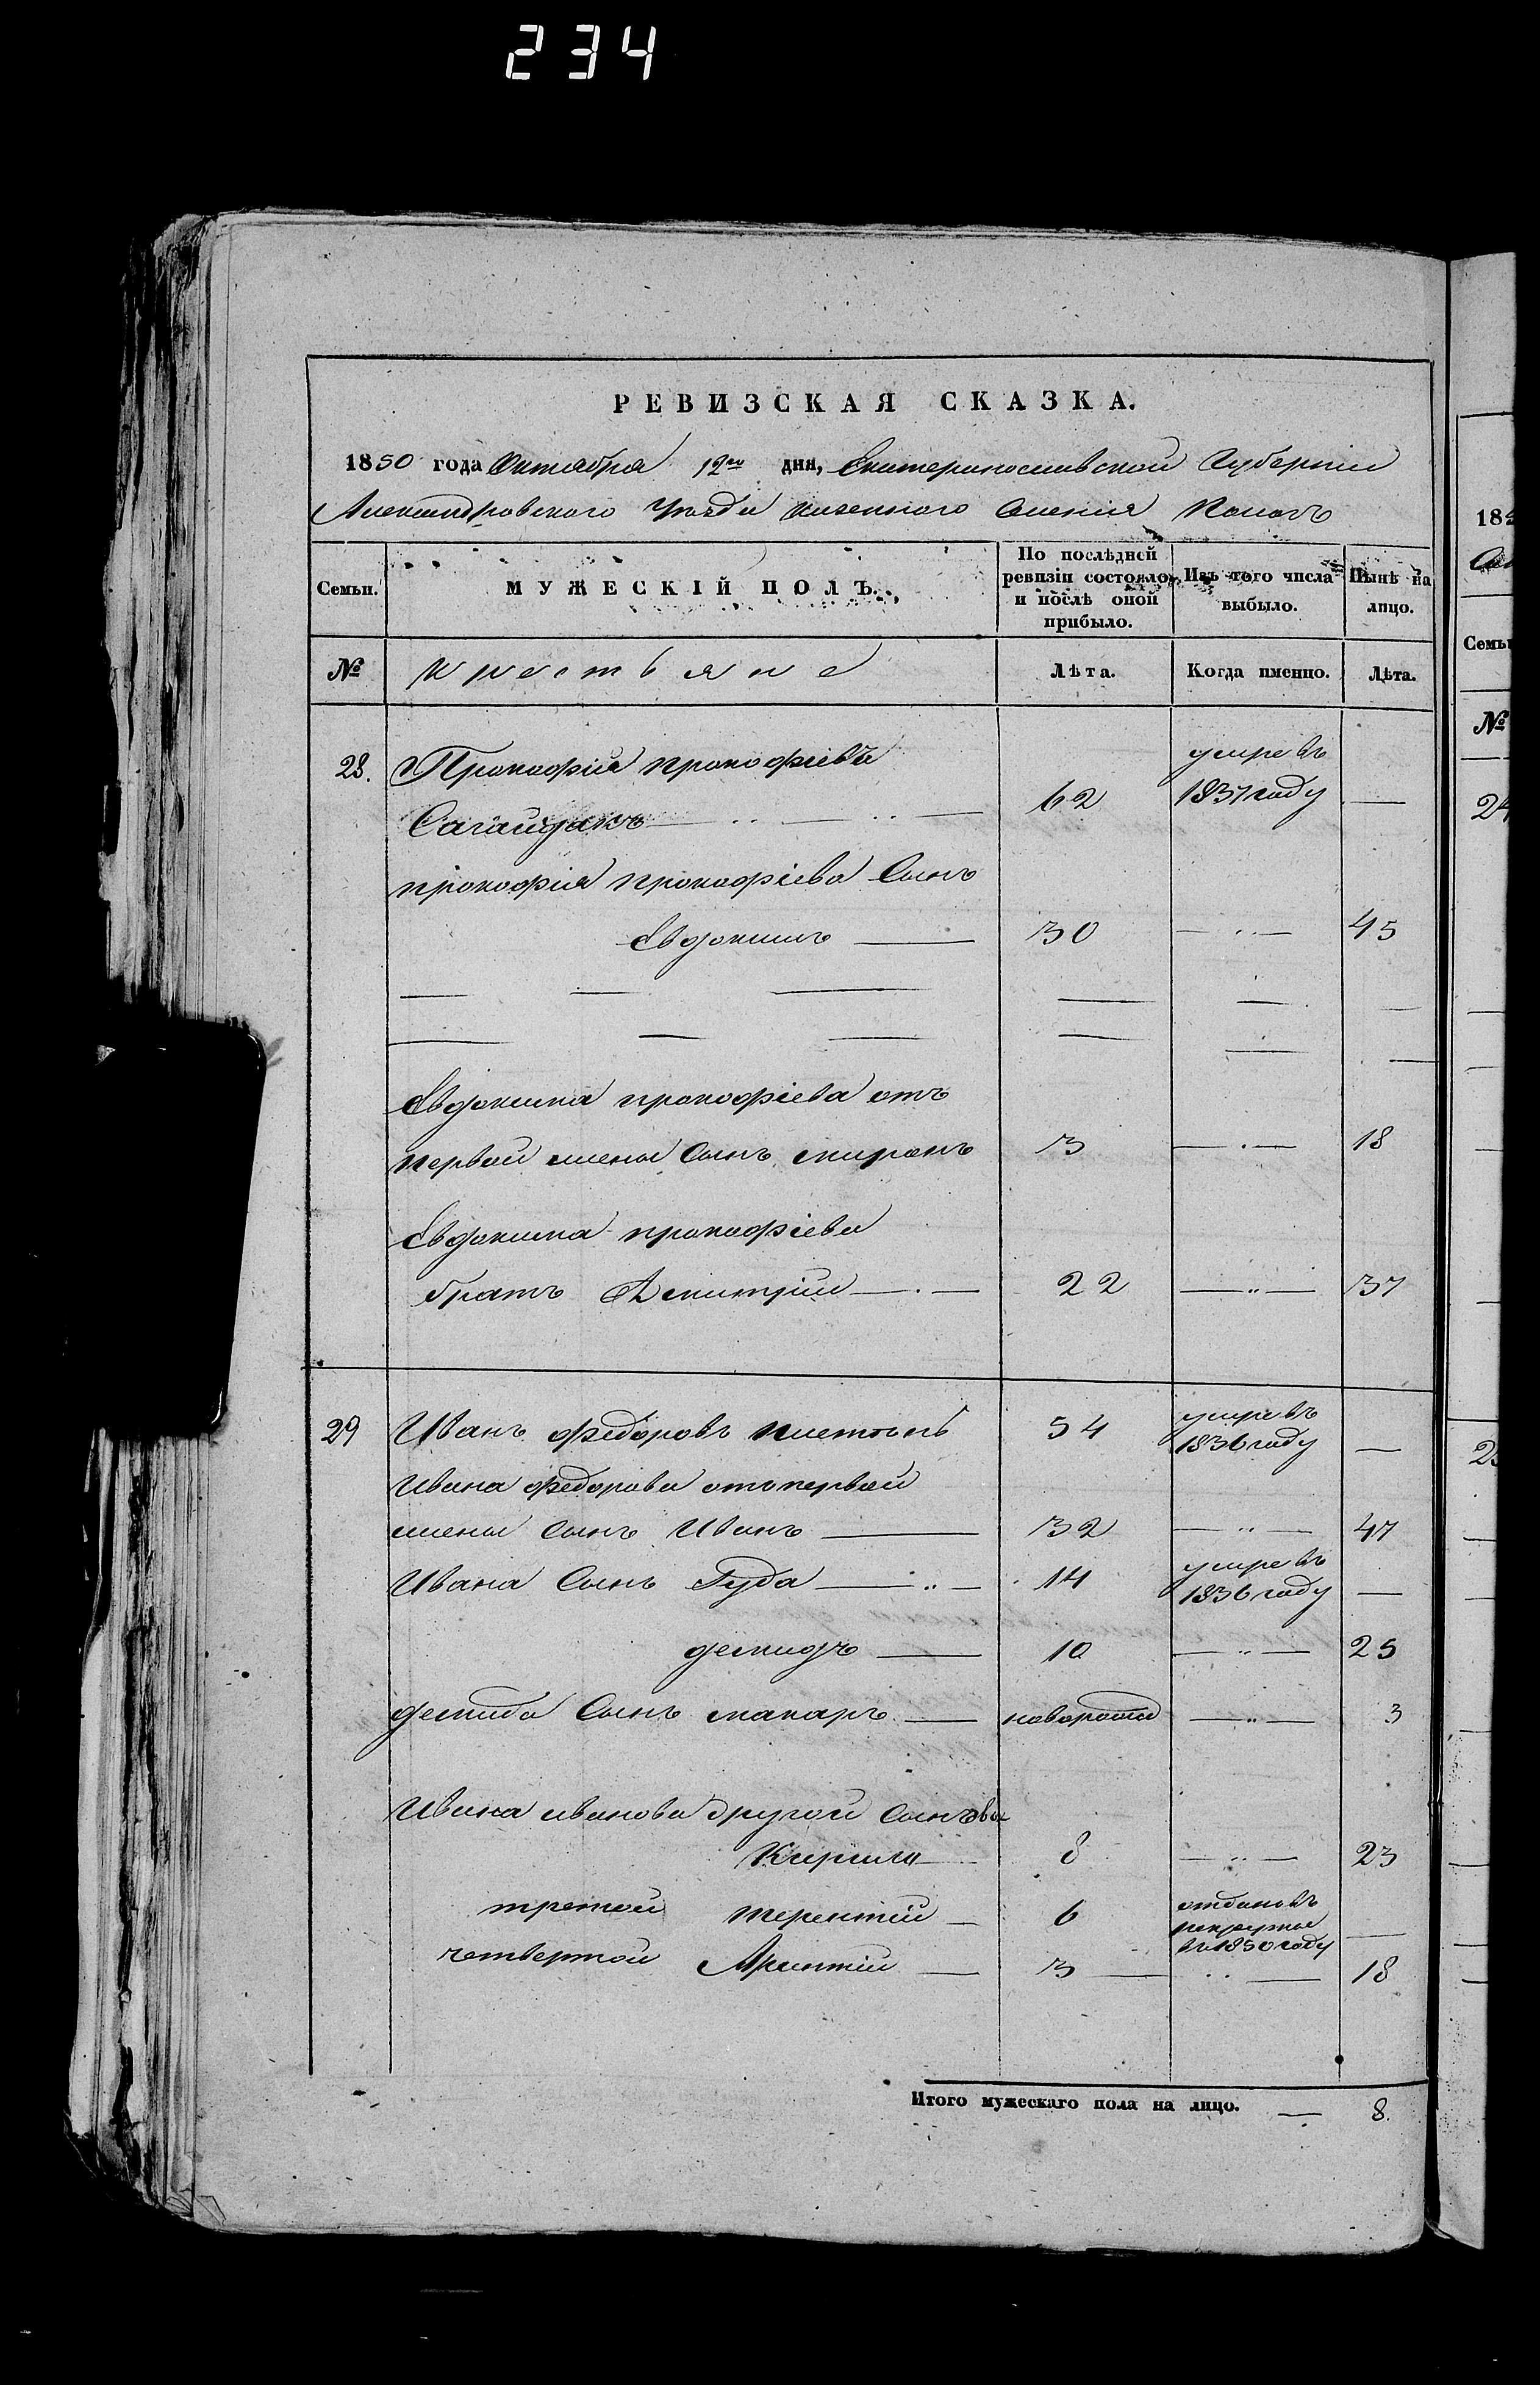 234
РЕВИЗСКАЯ СКАЗКА.
1850 года Октября 12го дня, Екатеринославской Губернии
Александровского Уезда казенного Селения
Семьи. МУЖЕСКІЙ ПОЛЪ. По послѣдней ревизіи состояло и послѣ оной прибыло. Изъ того числа выбыло. Нынѣ на лицо.
№ крестьяне Лѣта. Когда именно. Лѣта.
28. Прокофій прокофіевъ умре въ
Сагайдакъ 62 1837 году —
прокофія прокофіева Сынъ
Евдокимъ 30 — 45
Евдокима прокофіева отъ
первой жены Сынъ миронъ 3 — 18
Евдокима прокофіева
братъ Дмитрій 22 — 37
29 Иванъ федоровъ 54 умре въ 1836 году —
Ивана федорова отъ первой
жены Сынъ Иванъ 32 — 47
Ивана Сынъ Гуда 14 умре въ 1836 году —
демидъ 10 — 25
демида Сынъ макаръ новорожд — 3
Ивана иванова другой Сынъ
Кирило 8 — 23
третой терентій 6 отданъ въ рекруты въ 1850 году —
четвертой 3 — 18
Итого мужескаго пола на лицо. — 8.
184
Семьи
№
24